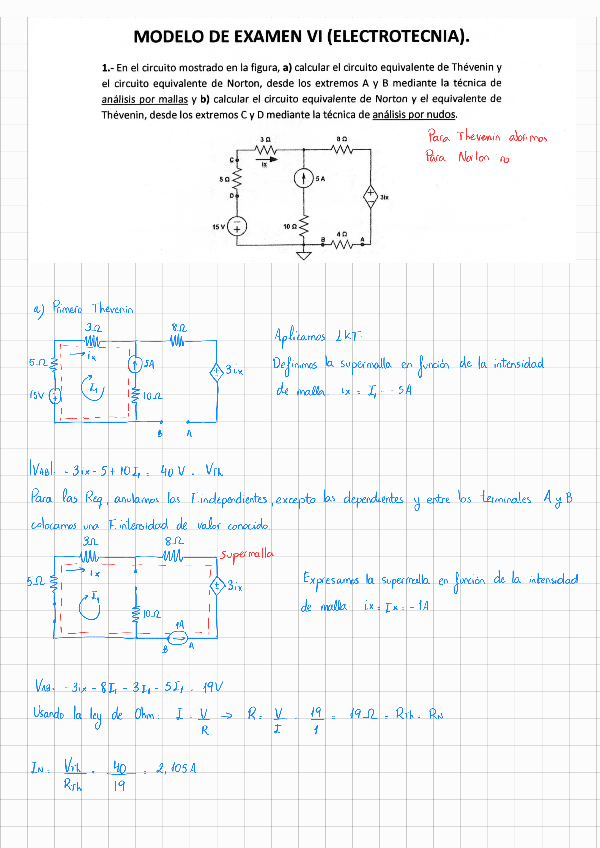 MODELO DE EXAMEN VI (ELECTROTECNIA).
1.- En el circuito mostrado en la figura, a) calcular el circuito equivalente de Thévenin y
el circuito equivalente de Norton, desde los extremos A y B mediante la técnica de
análisis por mallas y b) calcular el circuito equivalente de Norton y el equivalente de
Thévenin, desde los extremos C y D mediante la técnica de análisis por nudos.
Para Thevenin abrimos
Para Norton
3 Ω
8 Ω
C
ix
5 Ω
5 A
D
3ix
15 V
10 Ω
4 Ω
B
A
a) Primero Thevenin
3Ω
8Ω
ix
5Ω
5A
3ix
I1
15V
10Ω
B
A
Aplicamos LKT:
Definimos la supermalla en función de la intensidad
de malla ix = I1 = -5A
|VAB| = -3ix - 5 + 10I1 = 40 V = VTh
Para las Req, anulamos las F.independientes, excepto las dependientes y entre los terminales A y B
colocamos una F.intensidad de valor conocido
3Ω
8Ω
Supermalla
5Ω
ix
3ix
I1
10Ω
1A
B
A
Expresamos la supermalla en función de la intensidad
de malla ix = Ix = -1A
VAB = -3ix - 8I1 - 3I1 - 5I1 = 19V
Usando la ley de Ohm: I = V/R → R = V/I = 19/1 = 19Ω = RTh = RN
IN = VTh/RTh = 40/19 = 2,105A